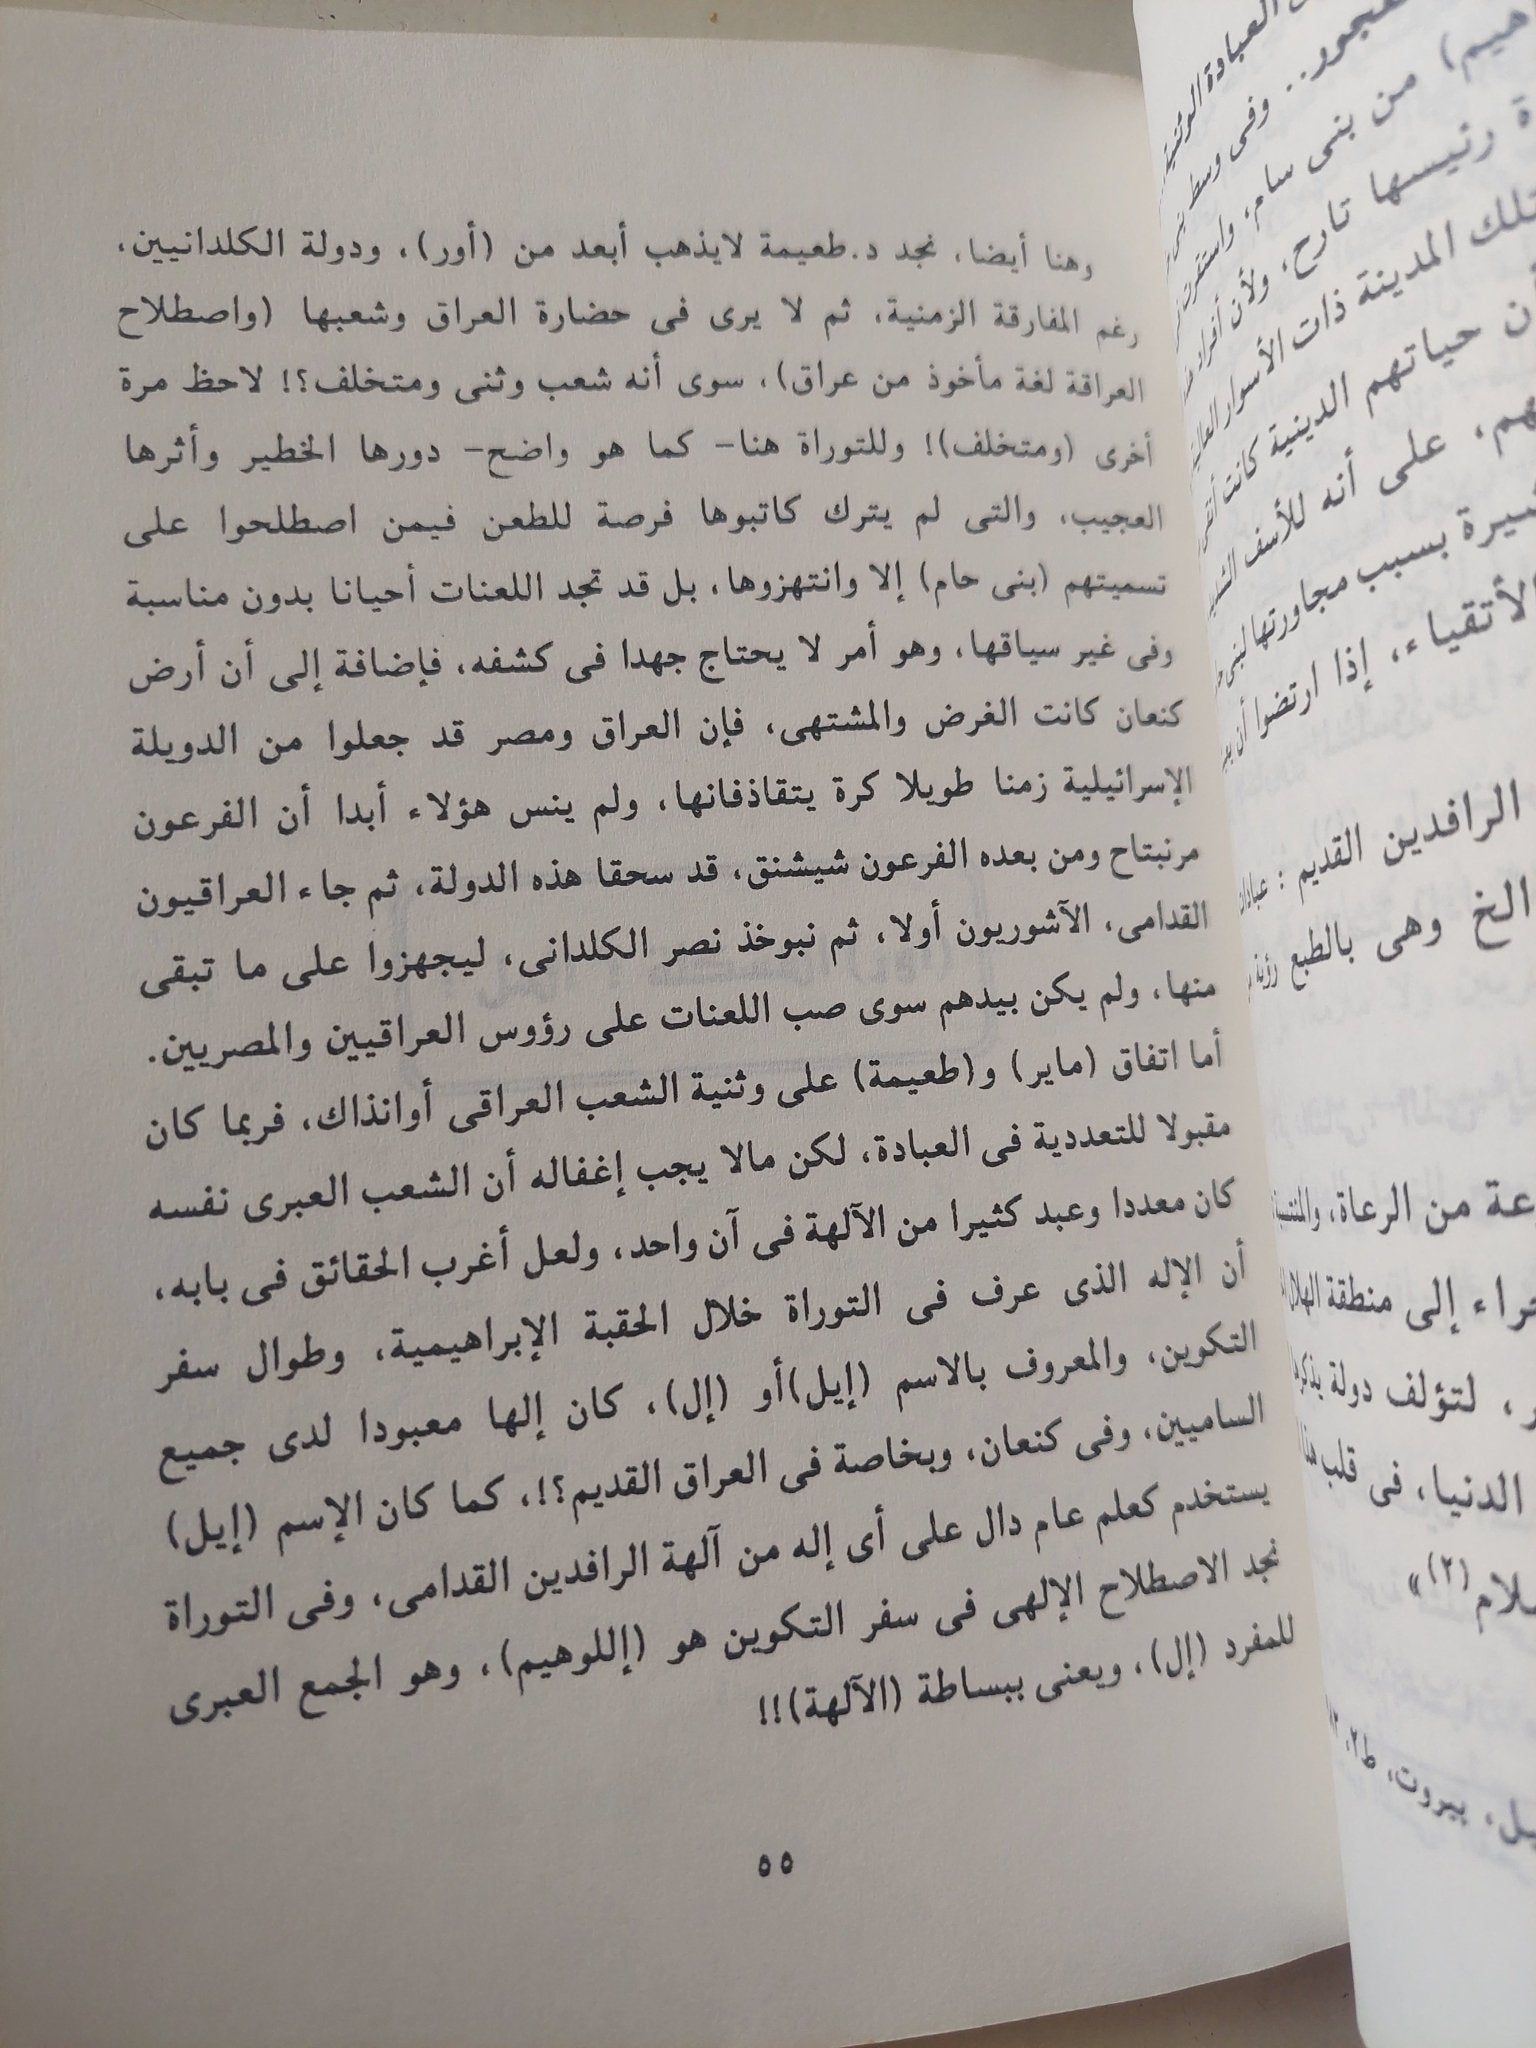 وهنا أيضا، نجد د.طعيمة لايذهب أبعد من (أور)، ودولة الكلدانيين،
رغم المفارقة الزمنية، ثم لا يرى فى حضارة العراق وشعبها (واصطلاح
العراقة لغة مأخوذ من عراق)، سوى أنه شعب وثنى ومتخلف؟! لاحظ مرة
أخرى (ومتخلف)! وللتوراة هنا- كما هو واضح- دورها الخطير وأثرها
العجيب، والتى لم يترك كاتبوها فرصة للطعن فيمن اصطلحوا على
تسميتهم (بنى حام) إلا وانتهزوها، بل قد تجد اللعنات أحيانا بدون مناسبة
وفى غير سياقها، وهو أمر لا يحتاج جهدا فى كشفه، فإضافة إلى أن أرض
كنعان كانت الغرض والمشتهى، فإن العراق ومصر قد جعلوا من الدويلة
الإسرائيلية زمنا طويلا كرة يتقاذفانها، ولم ينس هؤلاء أبدا أن الفرعون
مرنبتاح ومن بعده الفرعون شيشنق، قد سحقا هذه الدولة، ثم جاء العراقيون
القدامى، الآشوريون أولا، ثم نبوخذ نصر الكلدانى، ليجهزوا على ما تبقى
منها، ولم يكن بيدهم سوى صب اللعنات على رؤوس العراقيين والمصريين.
أما اتفاق (ماير) و(طعيمة) على وثنية الشعب العراقى أوانذاك، فربما كان
مقبولا للتعددية فى العبادة، لكن مالا يجب إغفاله أن الشعب العبرى نفسه
كان معددا وعبد كثيرا من الآلهة فى آن واحد، ولعل أغرب الحقائق فى بابه،
أن الإله الذى عرف فى التوراة خلال الحقبة الإبراهيمية، وطوال سفر
التكوين، والمعروف بالاسم (إيل)أو (إل)، كان إلها معبودا لدى جميع
الساميين، وفى كنعان، وبخاصة فى العراق القديم؟!، كما كان الإسم (إيل)
يستخدم كعلم عام دال على أى إله من آلهة الرافدين القدامى، وفى التوراة
نجد الاصطلاح الإلهى فى سفر التكوين هو (إللوهيم)، وهو الجمع العبرى
للمفرد (إل)، ويعنى ببساطة (الآلهة)!!
٥٥
العبادة الوثنية
.. وفى وسط
من بنى سام، واستقرت
رئيسها تارح، ولأن أفراد
تلك المدينة ذات الأسوار العالية
حياتهم الدينية كانت
على أنه للأسف الشديد
بسبب مجاورتها لبنى
الأتقياء، إذا ارتضوا أن
الرافدين القديم : عبادات
الخ وهى بالطبع رؤية
من الرعاة،
إلى منطقة الهلال
لتؤلف دولة
الدنيا، فى قلب هذا
(٢)»
بيروت، ط٢،